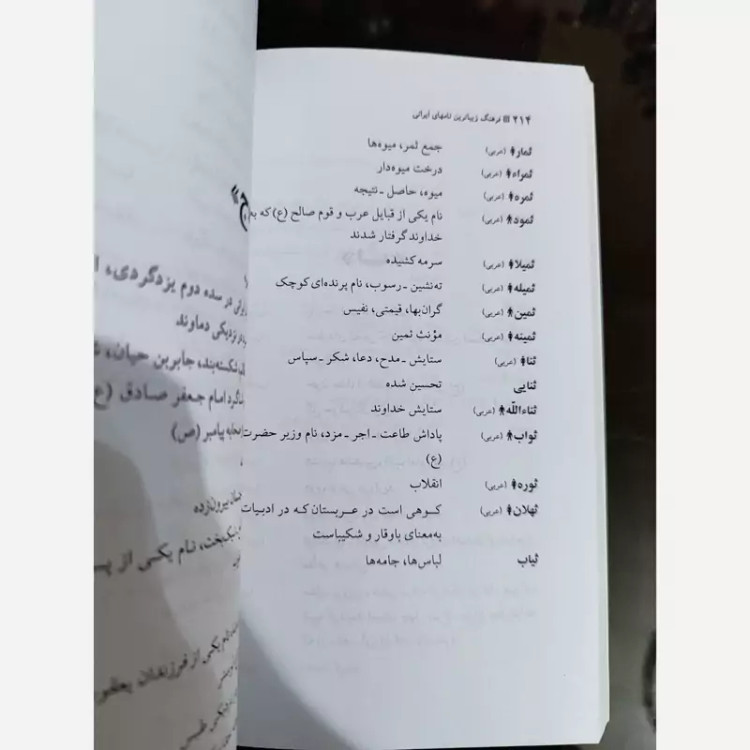 ۲۱۴ ||| فرهنگ زیباترین نامهای ایرانی
ثمار (عربی) جمع ثمر، میوه‌ها
ثمراء (عربی) درخت میوه‌دار
ثمره (عربی) میوه، حاصل ـ نتیجه
ثمود (عربی) نام یکی از قبایل عرب و قوم صالح (ع) که به
خداوند گرفتار شدند
ثمیلا (عربی) سرمه کشیده
ثمیله (عربی) ته‌نشین ـ رسوب، نام پرنده‌ای کوچک
ثمین (عربی) گران‌بها، قیمتی، نفیس
ثمینه (عربی) مؤنث ثمین
ثنا (عربی) ستایش ـ مدح، دعا، شکر ـ سپاس
ثنایی تحسین شده
ثناءالله (عربی) ستایش خداوند
ثواب (عربی) پاداش طاعت ـ اجر ـ مزد، نام وزیر حضرت
(ع)
ثوره (عربی) انقلاب
ثهلان (عربی) کوهی است در عربستان که در ادبیات
به‌معنای باوقار و شکیباست
ثیاب لباس‌ها، جامه‌ها
در سده دوم یزدگردی،
نزدیکی دماوند
شکسته‌بند، جابربن حیان،
امام جعفر صادق (ع)
پیامبر (ص)
بیرون‌زده
نیک‌بخت، نام یکی از
نام یکی از فرزندان یعقوب